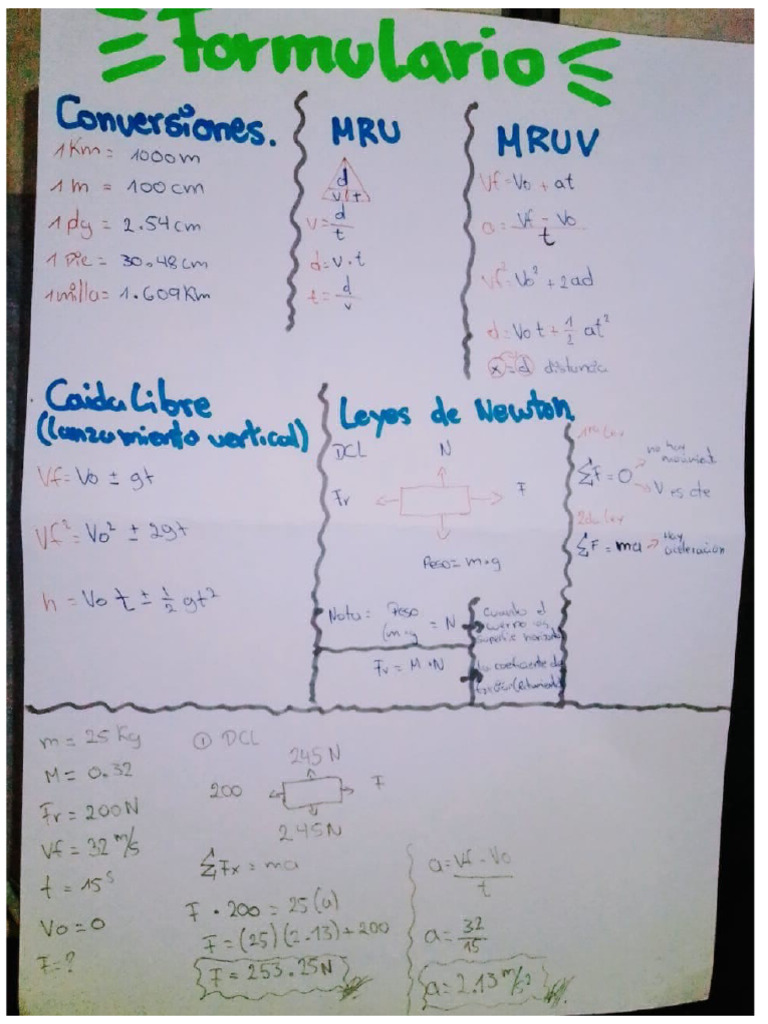 Formulario
Conversiones.
1 Km = 1000 m
1 m = 100 cm
1 plg = 2.54 cm
1 Pie = 30.48 cm
1 milla = 1.609 Km
MRU
d
v t
v = d/t
d = v · t
t = d/v
MRUV
Vf = Vo + at
a = Vf - Vo / t
Vf² = Vo² + 2ad
d = Vo t + 1/2 at²
x = d distancia
Caida Libre
(lanzamiento vertical)
Vf = Vo ± gt
Vf² = Vo² ± 2gt
h = Vo t ± 1/2 gt²
Leyes de Newton
DCL
N
Fr
F
Peso = m · g
Nota: Peso
(m·g = N
cuando el
horizontal
Fr = M · N
coeficiente de
1ra Ley
ΣF = 0
no hay
V es cte
2da Ley
ΣF = ma
Hay
aceleración
m = 25 Kg
M = 0.32
Fr = 200 N
Vf = 32 m/s
t = 15 s
Vo = 0
F = ?
① DCL
245 N
200
F
245 N
ΣFx = ma
F · 200 = 25 (a)
F = (25)(2.13) + 200
F = 253.25 N
a = Vf - Vo / t
a = 32/15
a = 2.13 m/s²